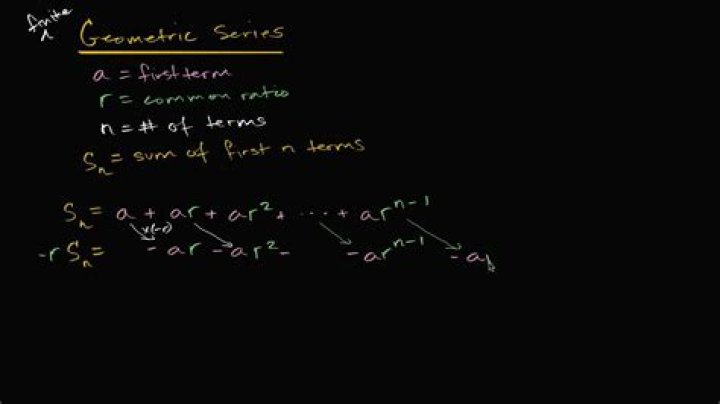 finite
Geometric Series
a = first term
r = common ratio
n = # of terms
Sₙ = sum of first n terms
Sₙ = a + ar + ar² + ··· + arⁿ⁻¹
x(-r)
-r Sₙ = - ar - ar² - - arⁿ⁻¹ - a